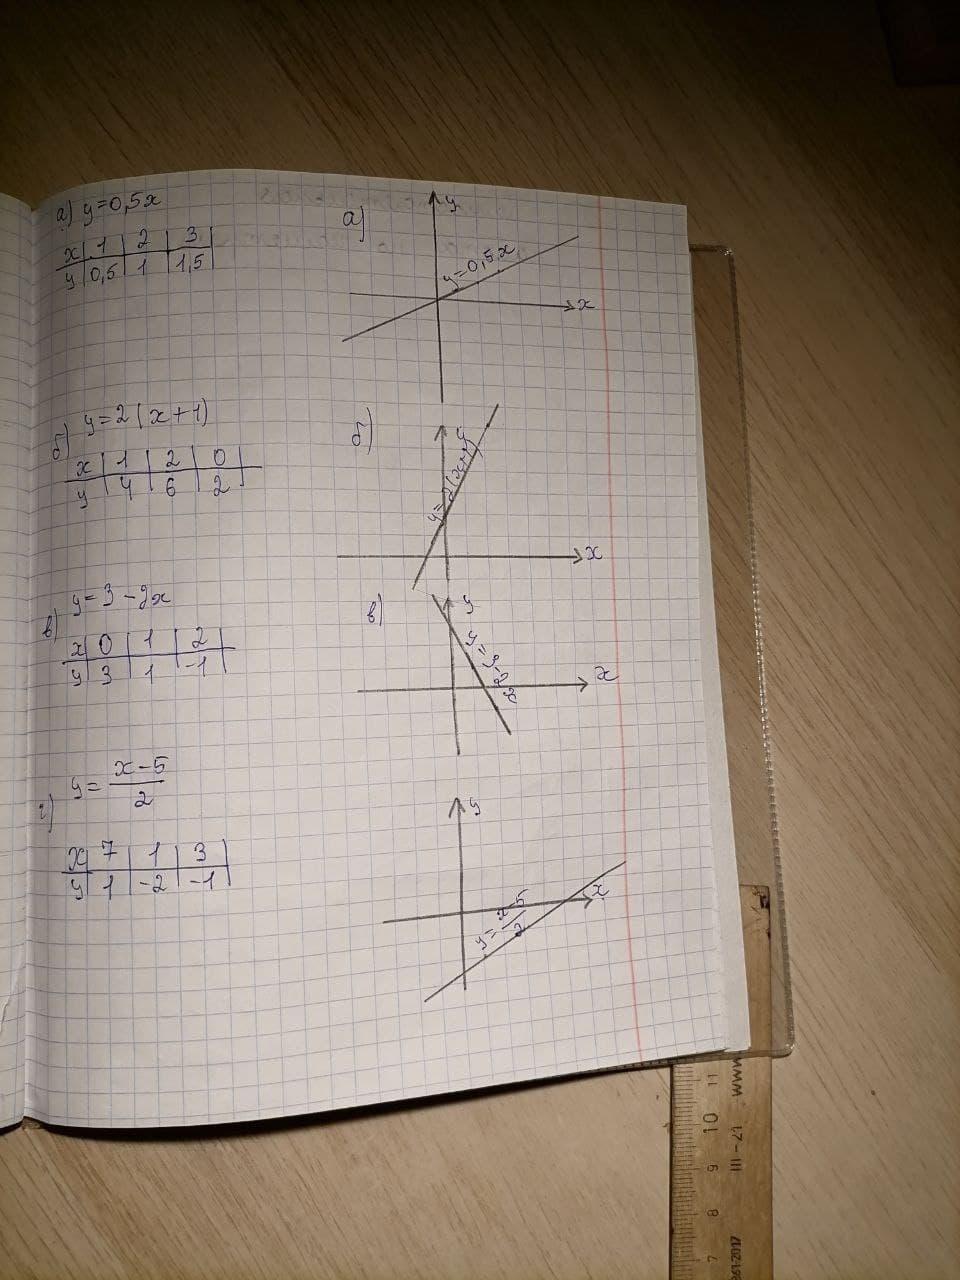 а) y=0,5x
x | 1 | 2 | 3
y | 0,5 | 1 | 1,5
а)
y
y=0,5x
x
б) y=2(x+1)
x | 1 | 2 | 0
y | 4 | 6 | 2
б)
y
y=2(x+1)
x
в) y=3-2x
x | 0 | 1 | 2
y | 3 | 1 | -1
в)
y
y=3-2x
x
г) y=\frac{x-5}{2}
x | 7 | 1 | 3
y | 1 | -2 | -1
y
x
y=\frac{x-5}{2}
11
10
9
8
7
www
Ш-21